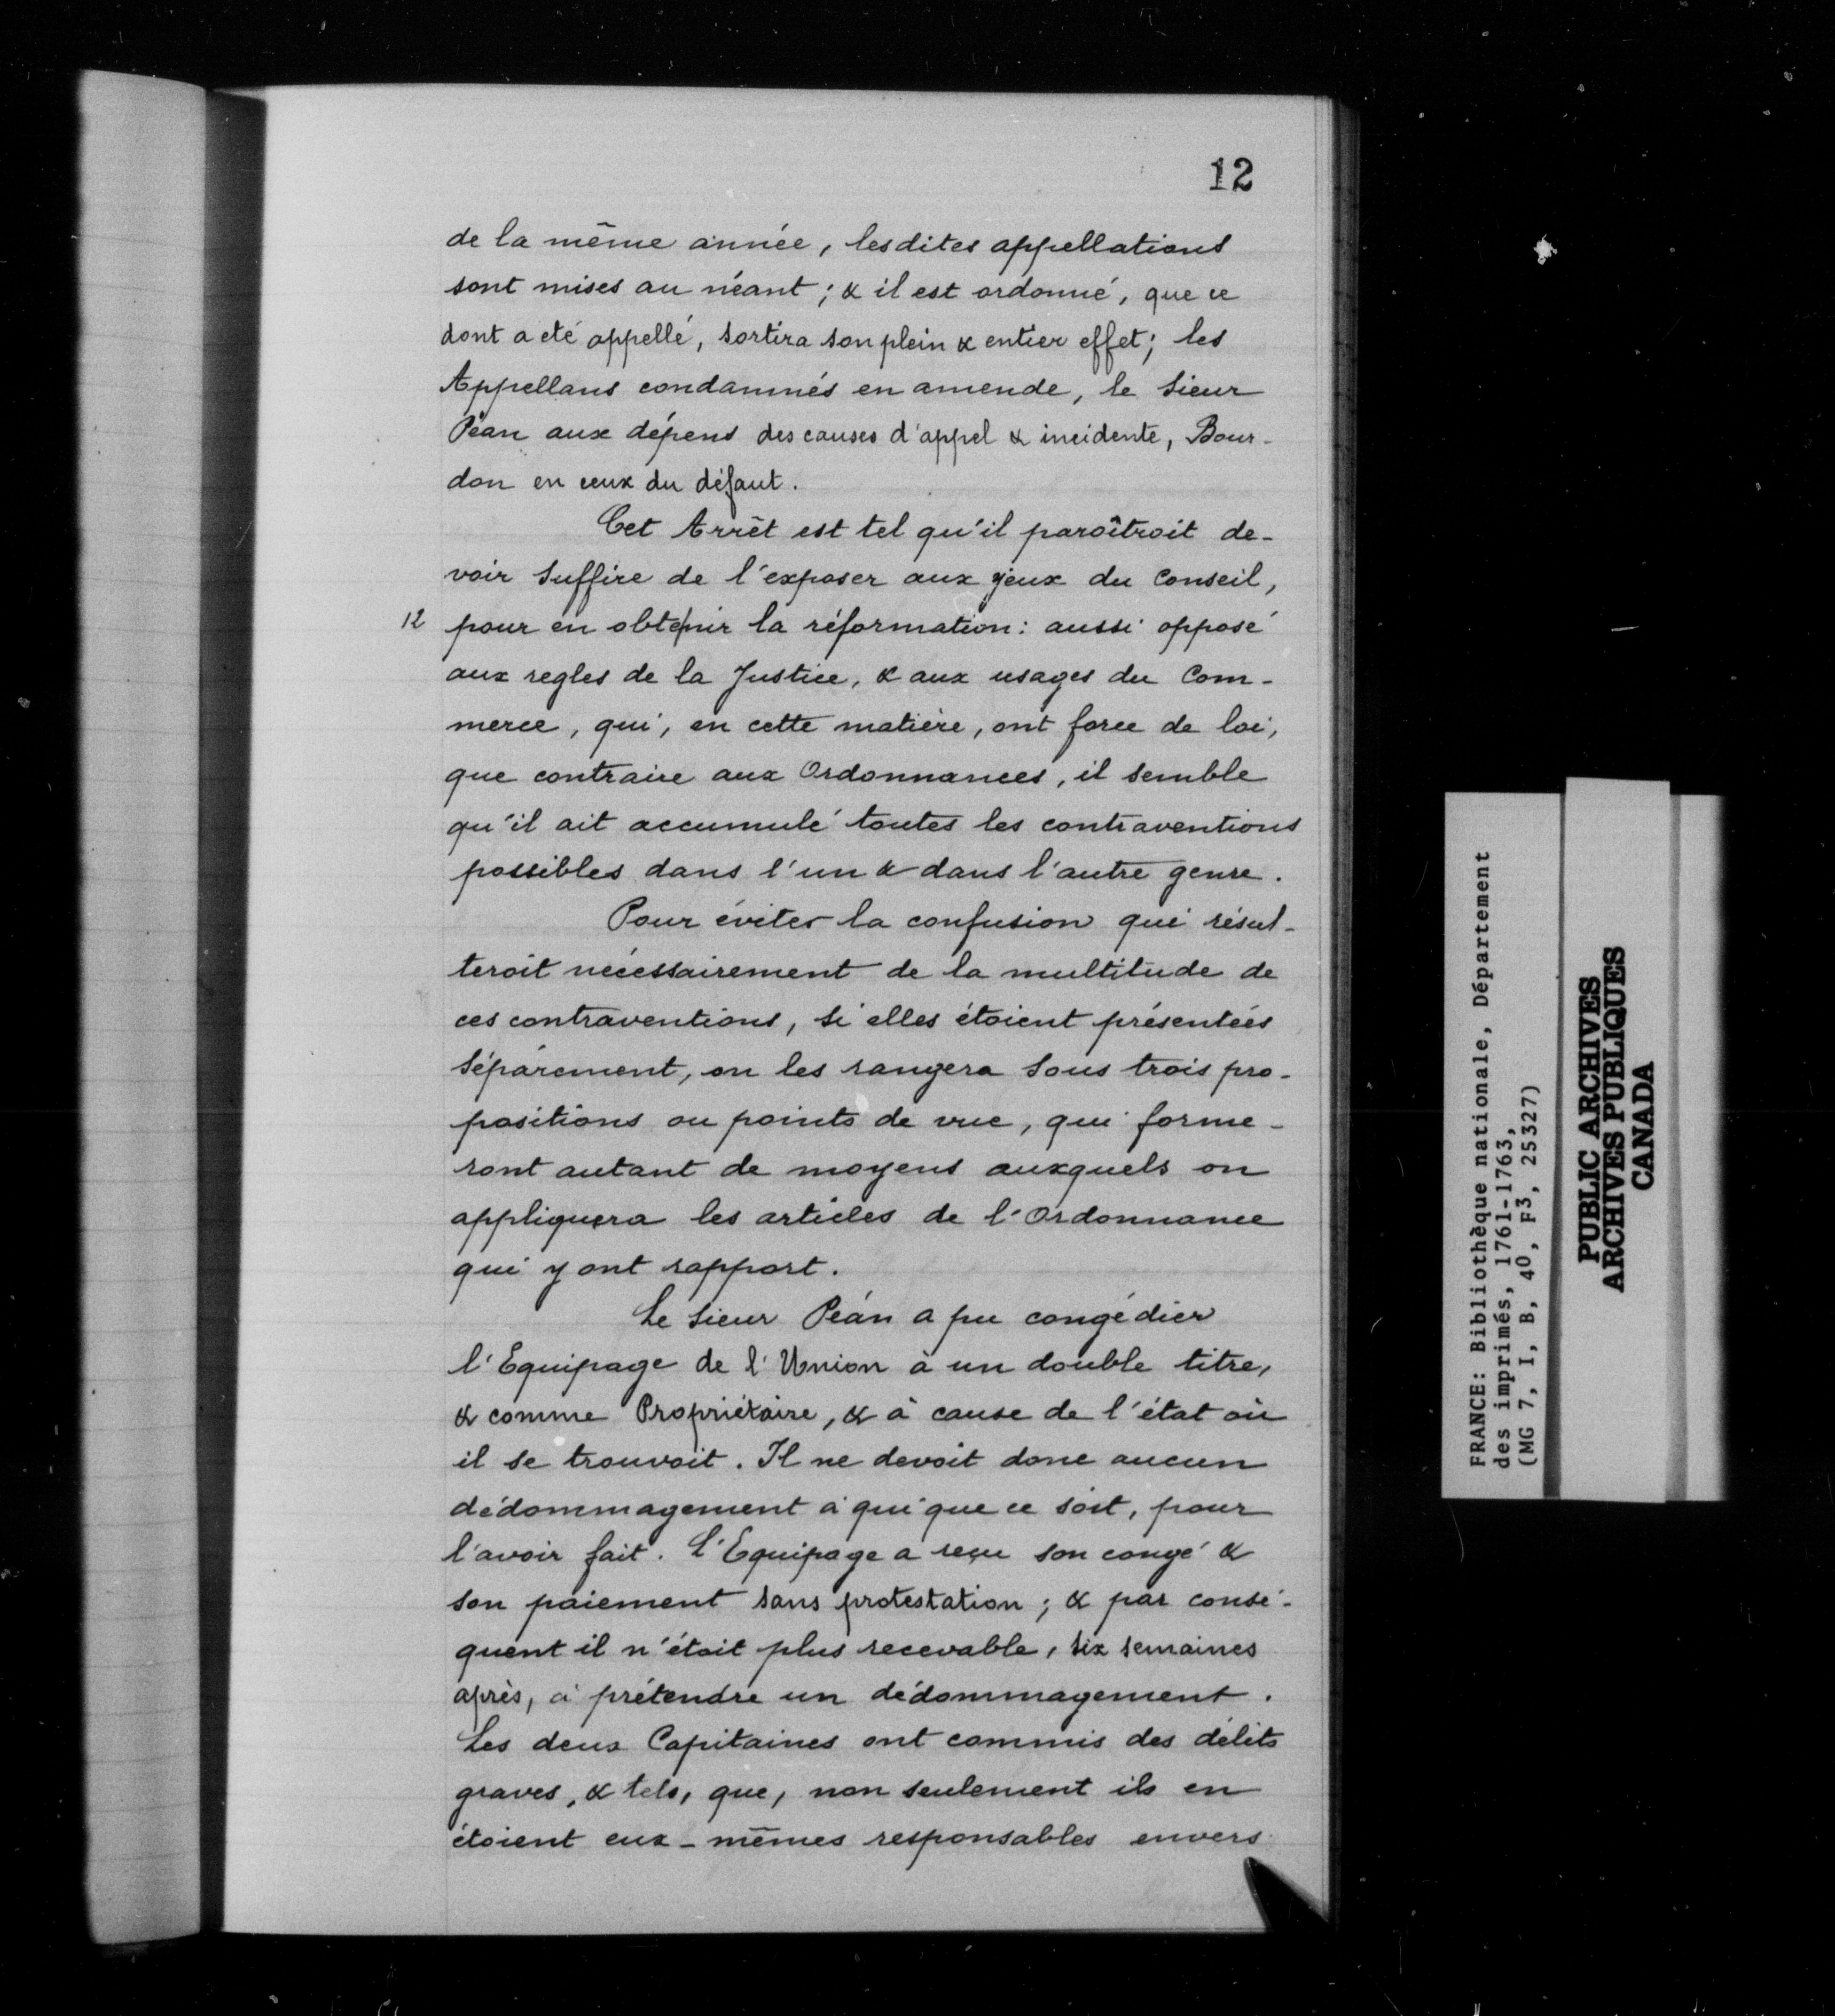 12
de la même année, lesdites appellations
sont mises au néant; & il est ordonné, que ce
dont a eté appellé, sortira son plein & entier effet; les
Appellans condamnés en amende, le Sieur
Péan aux dépens des causes d'appel & incidente, Bour-
don en ceux du défaut.
Cet Arrêt est tel qu'il paroîtroit de-
voir suffire de l'exposer aux yeux du Conseil,
12 pour en obtenir la réformation: aussi opposé
aux regles de la Justice, & aux usages du Com-
merce, qui, en cette matière, ont force de loi,
que contraire aux Ordonnances, il semble
qu'il ait accumulé toutes les contraventions
possibles dans l'un & dans l'autre genre.
Pour éviter la confusion qui résul-
teroit nécessairement de la multitude de
ces contraventions, si elles étoient présentées
séparément, on les rangera sous trois pro-
positions ou points de vue, qui forme-
ront autant de moyens auxquels on
appliquera les articles de l'Ordonnance
qui y ont rapport.
Le Sieur Péan a pu congédier
l'Equipage de l'Union à un double titre,
& comme Propriétaire, & à cause de l'état où
il se trouvoit. Il ne devoit donc aucun
dédommagement à qui que ce soit, pour
l'avoir fait. L'Equipage a reçu son congé &
son paiement sans protestation; & par consé-
quent il n'étoit plus recevable, six semaines
après, à prétendre un dédommagement.
Les deux Capitaines ont commis des délits
graves, & tels, que, non seulement ils en
étoient eux-mêmes responsables envers
FRANCE: Bibliothèque nationale, Département
des imprimés, 1761-1763,
(MG 7, I, B, 40, F3, 25327)
PUBLIC ARCHIVES
ARCHIVES PUBLIQUES
CANADA